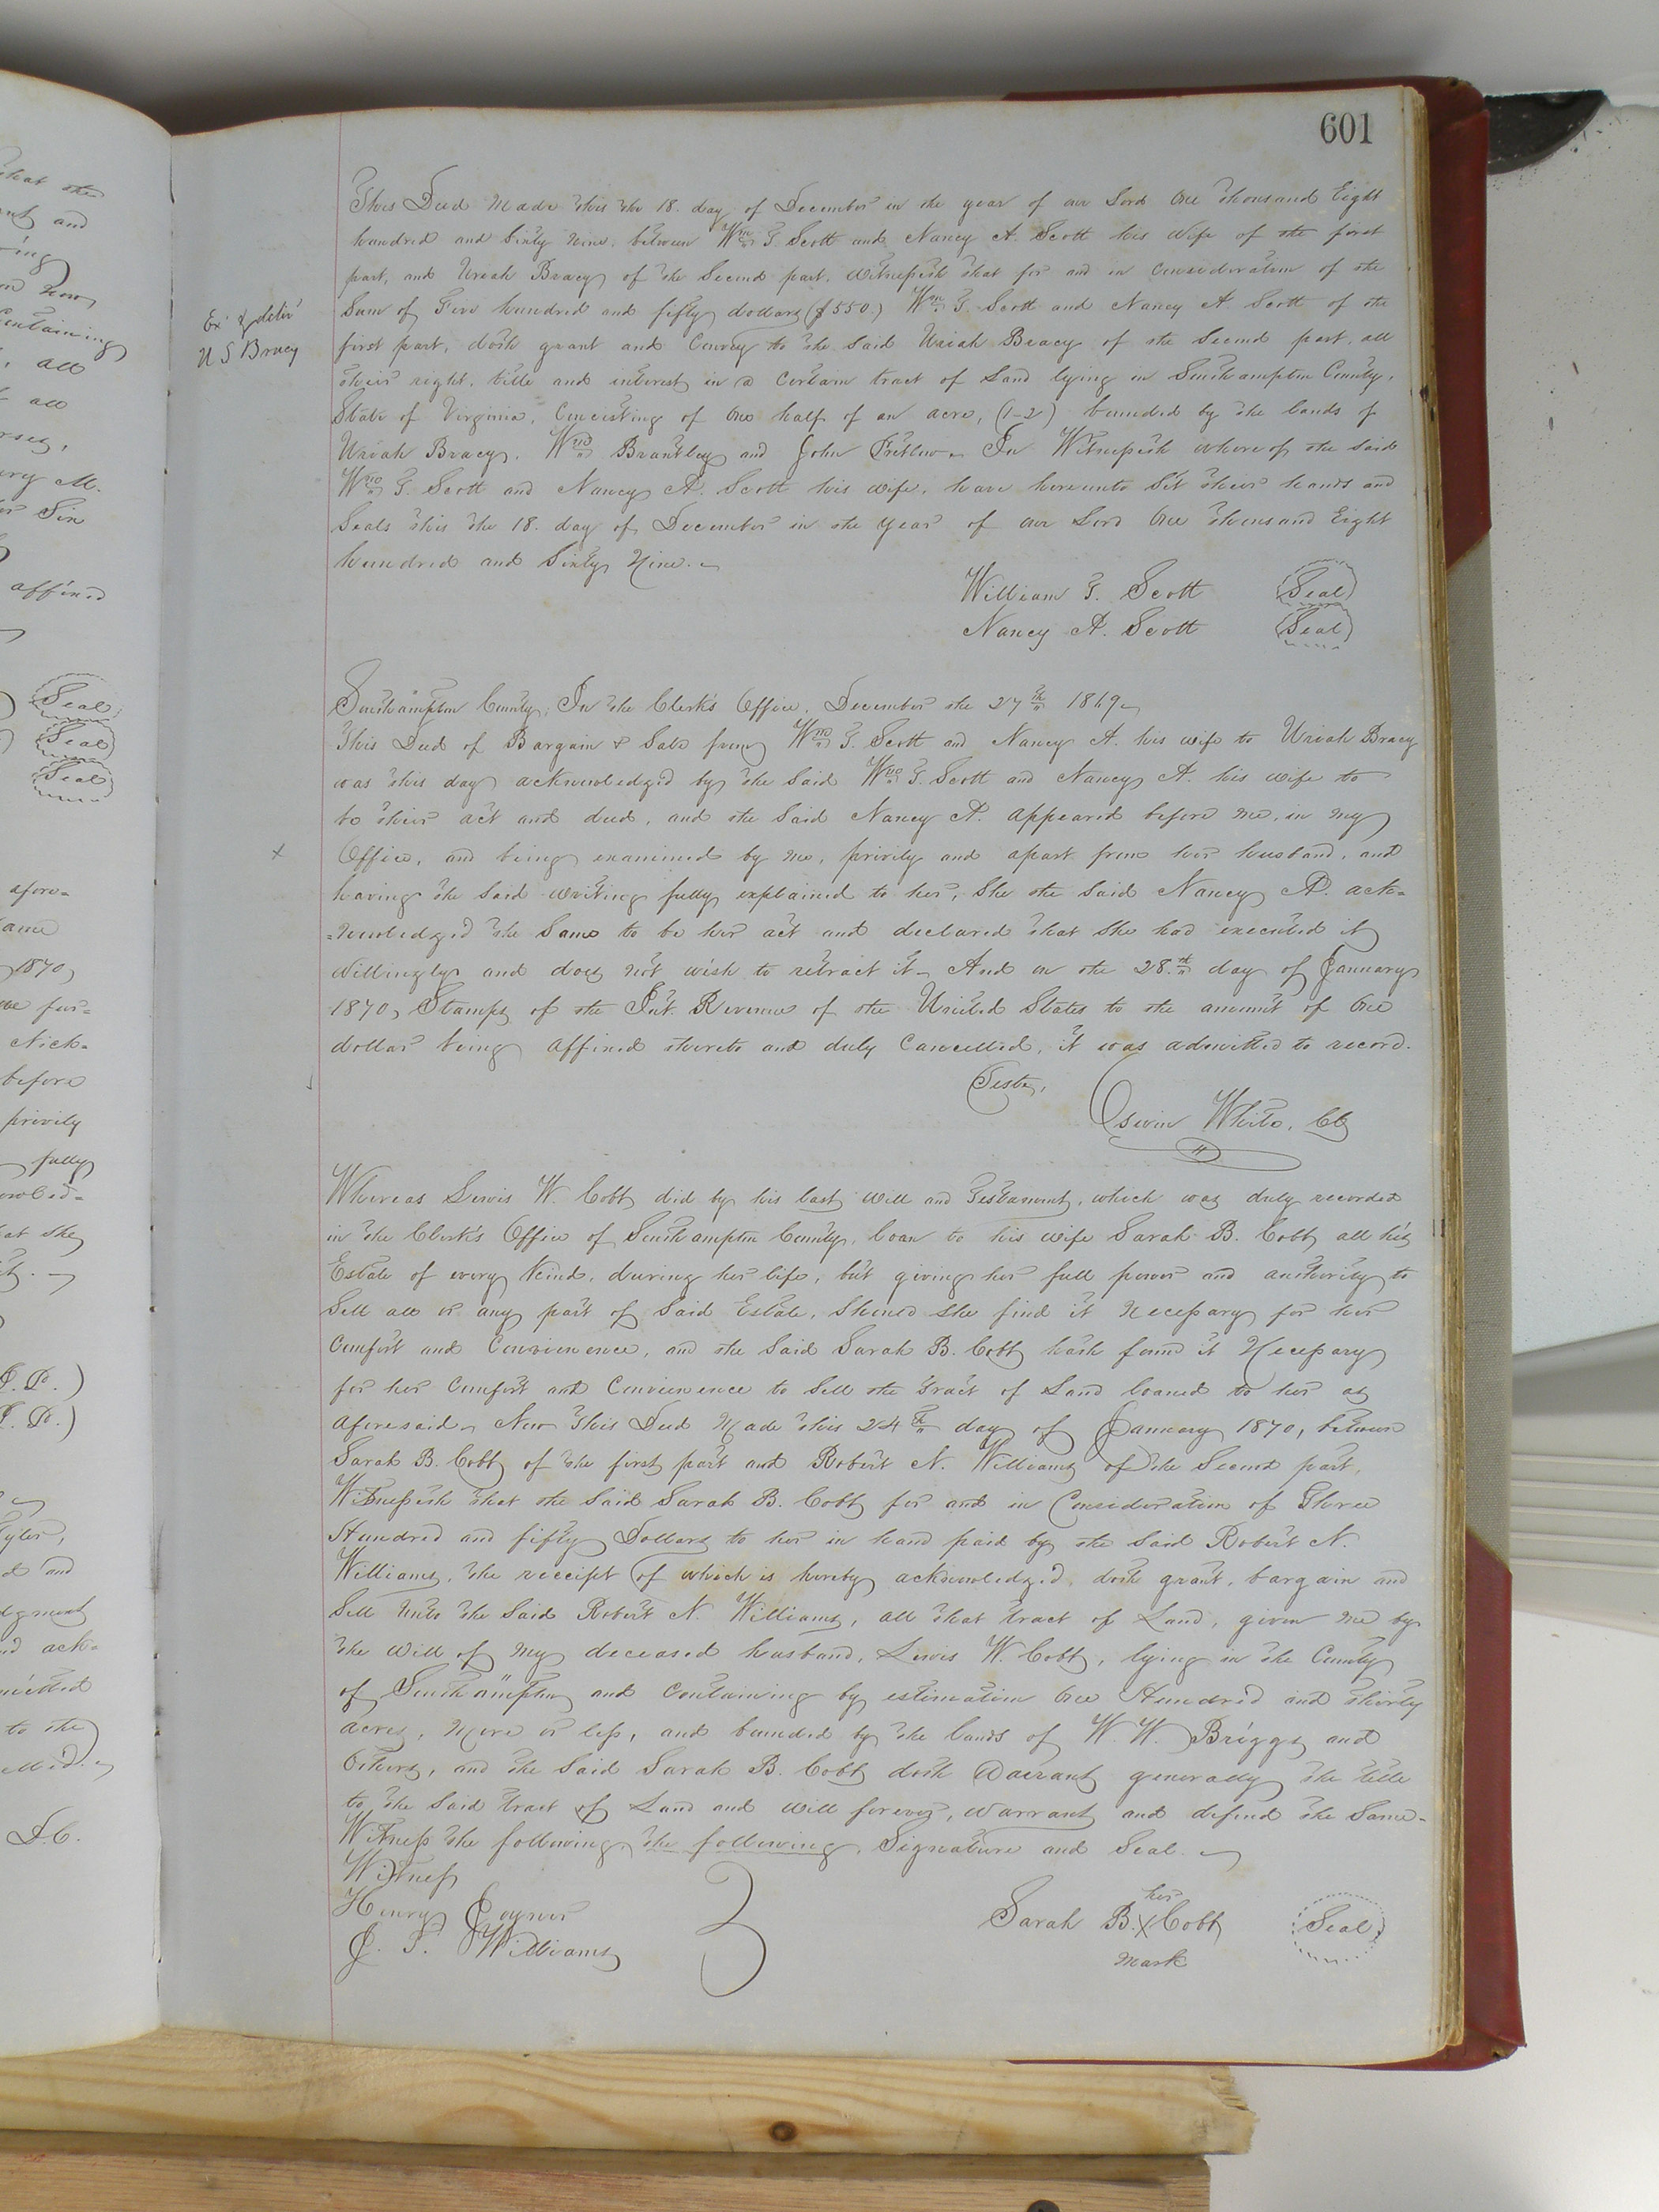 601
This Deed Made this the 18. day of December in the year of our Lord One thousand Eight
hundred and Sixty nine. between Wm. T. Scott and Nancy A. Scott his Wife of the first
part, and Uriah Bracy of the Second part. Witnesseth that for and in Consideration of the
Sum of Five hundred and fifty dollars ($550.) Wm. T. Scott and Nancy A. Scott of the
first part, doth grant and Convey to the said Uriah Bracy of the Second part, all
their right, title and interest in a certain tract of Land lying in Southampton County,
State of Virginia, Consisting of One half of an acre, (1-2) bounded by the lands of
Uriah Bracy, Wm. Brantley and John Pretlow. In Witnesseth whereof the said
Wm. T. Scott and Nancy A. Scott his wife, have hereunto Set their hands and
Seals this the 18. day of December in the year of our Lord One thousand Eight
hundred and Sixty Nine.
William T. Scott (Seal)
Nancy A. Scott (Seal)
Ex'd & deliv'd
U S Bracy
Southampton County; In the Clerk's Office, December the 27th 1869
This Deed of Bargain & Sale from Wm. T. Scott and Nancy A. his wife to Uriah Bracy
was this day acknowledged by the Said Wm. T. Scott and Nancy A. his wife to
be their act and deed, and the Said Nancy A. appeared before me, in my
Office, and being examined by me, privily and apart from her husband, and
having the Said writing fully explained to her, She the said Nancy A. ack=
=nowledged the Same to be her act and declared that She had executed it
Willingly and does not wish to retract it - And on the 28.th day of January
1870, Stamps of the Int. Revenue of the United States to the amount of One
dollar being affixed thereto and duly Cancelled, it was admitted to record.
Teste,
Oswin White, Clk
Whereas Lewis W. Cobb did by his last Will and Testament, which was duly recorded
in the Clerk's Office of Southampton County, loan to his wife Sarah B. Cobb all his
Estate of every Kind, during her life, but giving her full power and authority to
Sell all or any part of Said Estate, Should She find it Necessary for her
Comfort and Convienence, and the Said Sarah B. Cobb hath found it Necessary
for her Comfort and Convienence to Sell the Tract of Land loaned to her as
aforesaid, Now This Deed Made this 24th day of January 1870, between
Sarah B. Cobb of the first part and Robert N. Williams of the Second part,
Witnesseth that the Said Sarah B. Cobb for and in Consideration of Three
Hundred and fifty Dollars to her in hand paid by the Said Robert N.
Williams, the receipt of which is hereby acknowledged, doth grant, bargain and
Sell Unto the Said Robert N. Williams, all that tract of Land, given me by
the Will of my deceased husband, Lewis W. Cobb, lying in the County
of Southampton and Containing by estimation One Hundred and thirty
acres, More or less, and bounded by the lands of W. W. Briggs and
Others, and the Said Sarah B. Cobb doth Warrant generally the title
to the Said tract of Land and will forever, warrant and defend the Same-
Witness the following, the following, Signature and Seal.
Witness
Henry Joyner
J. T. Williams
her
Sarah B. X Cobb (Seal)
mark